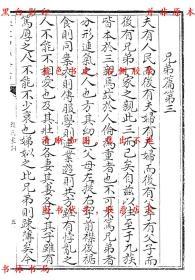 兄弟篇第三
夫有人民而後有夫婦有夫婦而後有父子有父子
而後有兄弟一家之親此三而已矣自茲以往至于九族
皆本於三親焉故於人倫為重者也不可不篤兄弟者
分形連氣之人也方其幼也父母左提右挈前襟後裾
食則同案衣則傳服學則連業遊則共方雖有悖亂之
人不能不相愛也及其壯也各妻其妻各子其子雖有
篤厚之人不能不少衰也娣姒之比兄弟則疎薄矣今
五